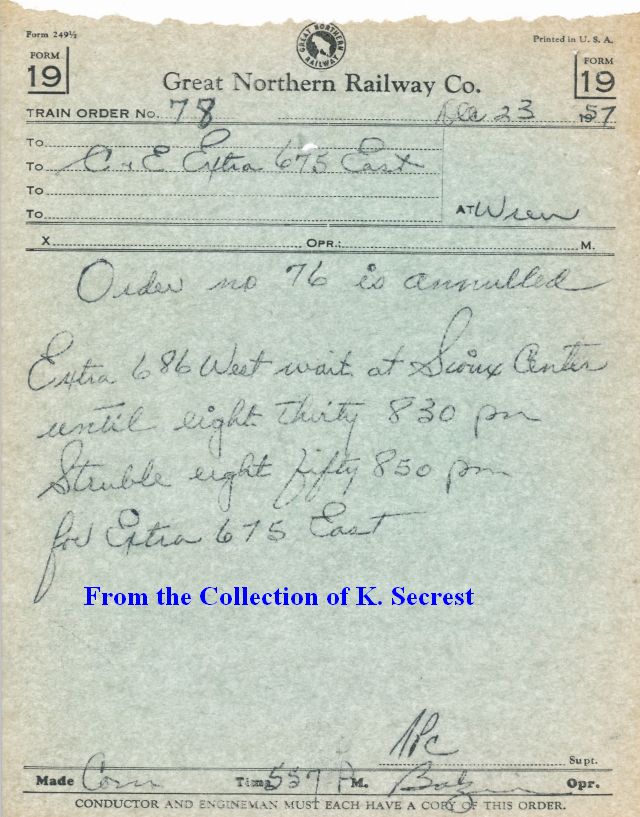 Form 249½
Printed in U. S. A.
GREAT NORTHERN RAILWAY
FORM 19
FORM 19
Great Northern Railway Co.
TRAIN ORDER No. 78 Dec 23 1957
To
To C & E Extra 675 East
To
To AT Wren
X OPR.: M.
Order no 76 is annulled
Extra 686 West wait at Sioux Center
until eight thirty 830 pm
Struble eight fifty 850 pm
for Extra 675 East
From the Collection of K. Secrest
Supt.
Made Com Time 557 P M. Opr.
CONDUCTOR AND ENGINEMAN MUST EACH HAVE A COPY OF THIS ORDER.